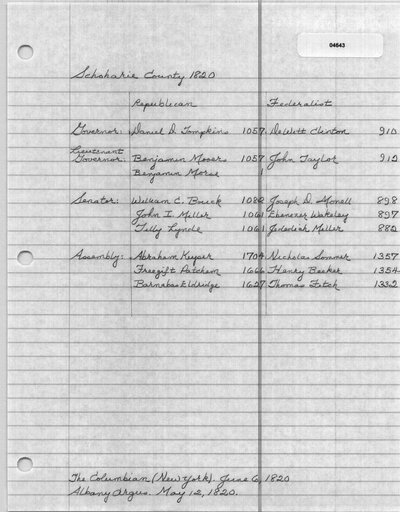 04643
Schoharie County 1820
Republican Federalist
Governor: Daniel D. Tompkins 1057 DeWitt Clinton 910
Lieutenant
Governor: Benjamin Mooers 1057 John Taylor 912
Benjamin Morse 1
Senator: William C. Bouck 1082 Joseph D. Monell 898
John I. Miller 1061 Ebenezer Wakeley 897
Tilly Lynde 1061 Jedediah Miller 882
Assembly: Abraham Keyser 1704 Nicholas Sommer 1357
Freegift Patchem 1666 Henry Becker 1354
Barnabas Eldridge 1627 Thomas 1332
The Columbian (New York). June 6, 1820
Albany Argus. May 12, 1820.